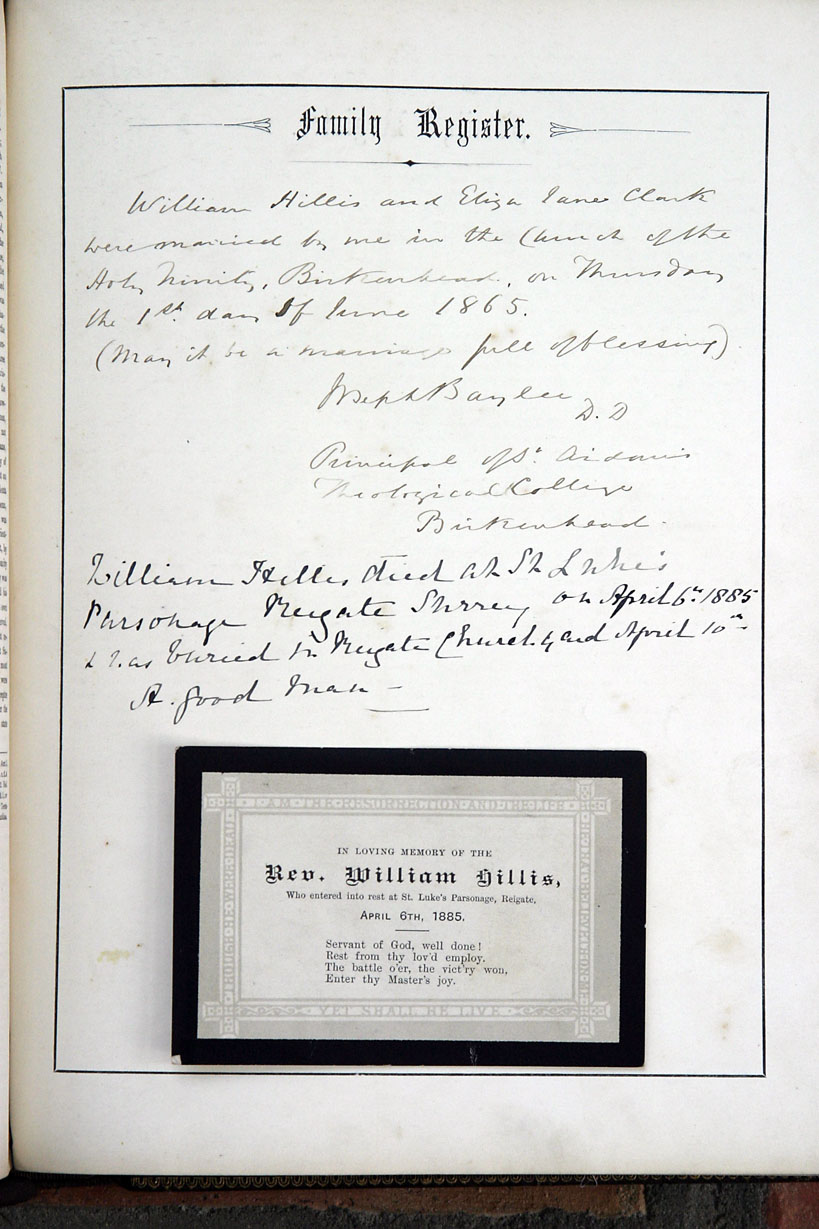 Family Register.
William Hillis and Eliza Jane Clark
were married by me in the Church of the
Holy Trinity, Birkenhead, on Thursday
the 1st. day of June 1865.
(May it be a marriage full of blessing)
Joseph Baylee D.D
Principal of St. Aidan's
Theological College
Birkenhead.
William Hillis died at St Luke's
Parsonage Reigate Surrey, on April 6th. 1885
& was buried in Reigate Churchyard April 10th
A good man –
I · AM · THE · RESURRECTION · AND · THE · LIFE
THOUGH · HE · WERE · DEAD
IN LOVING MEMORY OF THE
Rev. William Hillis,
Who entered into rest at St. Luke's Parsonage, Reigate,
APRIL 6TH, 1885.
Servant of God, well done!
Rest from thy lov'd employ.
The battle o'er, the vict'ry won,
Enter thy Master's joy.
YET SHALL HE LIVE